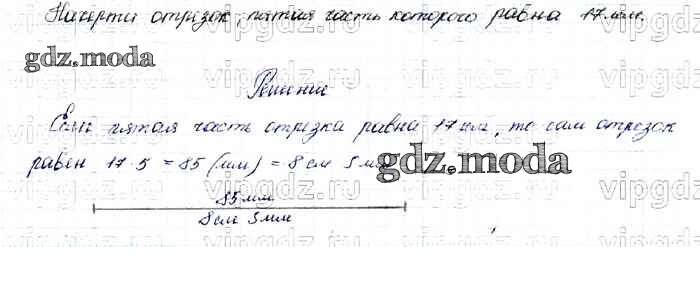 Начерти отрезок, пятая часть которого равна 17 мм.
gdz.moda
Решение
Если пятая часть отрезка равна 17 мм, то сам отрезок
равен 17·5 = 85 (мм) = 8 см 5 мм
gdz.moda
85 мм
8 см 5 мм
vipgdz.ru